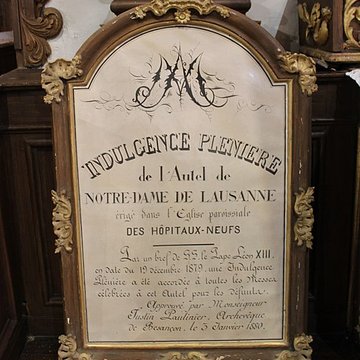 INDULGENCE PLENIERE
de l'Autel de
NOTRE-DAME DE LAUSANNE
érigé dans l'Eglise paroissiale
DES HÔPITAUX-NEUFS
Par un bref de SS. le Pape Léon XIII.
en date du 19 décembre 1879, une Indulgence
Plénière a été accordée à toutes les Messes
célébrées à cet Autel pour les défunts.
Approuvé par Monseigneur
Justin Paulinier, Archevêque
de Besançon, le 3 Janvier 1880.